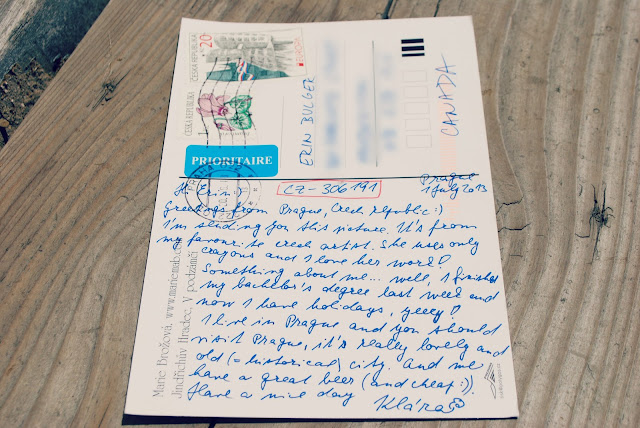 ČESKÁ REPUBLIKA
20
ČESKÁ REPUBLIKA
PRIORITAIRE
ERIN BULGER
CANADA
Prague
1 July 2013
CZ-306191
Hi Erin :)
Greetings from Prague, Czech republic :)
I'm sending you this picture. It's from
my favourite czech artist. She uses only
crayons and I love her work!
Something about me... well, I finished
my bachelor's degree last week and
now I have holidays, yeeey!
I live in Prague and you should
visit Prague, it's really lovely and
old (= historical) city. And we
have a great beer (and cheap :)).
Have a nice day
Klára
Marie Brožová, www.mariemab.
Jindřichův Hradec, V podzámčí